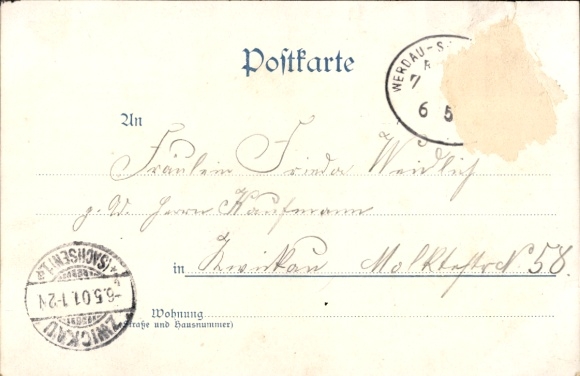 Postkarte
WERDAU-S
6 5
An
Fräulein Frieda Weidlich
p. Ad. Herrn Kaufmann
in Zwickau, Moltkestr N. 58.
(SACHSEN) 1.
6.5.01.1-2N
ZWICKAU
Wohnung
(Straße und Hausnummer)